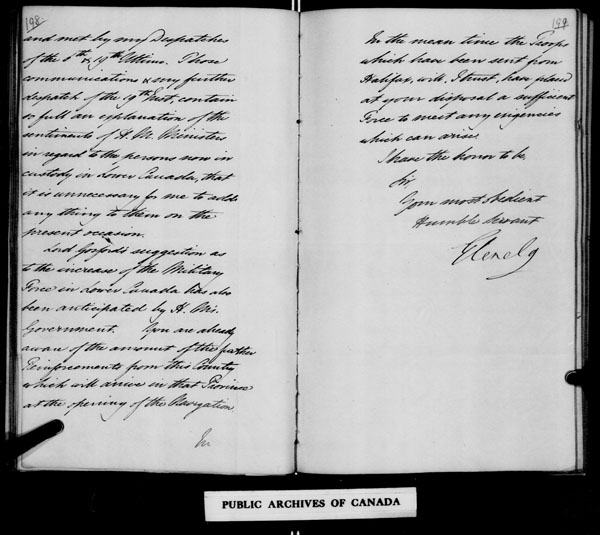 198
and met by my Despatches
of the 6th & 19th Ultimo. Those
communications & my further
despatch of the 19th Inst, contain
so full an explanation of the
sentiments of H. M. Ministers
in regard to the persons now in
custody in Lower Canada, that
it is unnecessary for me to add
any thing to them on the
present occasion.
Lord Gosford's suggestion as
to the increase of the Military
Force in Lower Canada has also
been anticipated by H. M's.
Government. You are already
aware of the amount of the further
Reinforcements from this Country
which will arrive in that Province
at the opening of the Navigation.
In
199
In the mean time the Troops
which have been sent from
Halifax, will, I trust, have placed
at your disposal a sufficient
Force to meet any exigencies
which can arise.
I have the honor to be,
Sir,
Your most obedient
Humble Servant
Glenelg
PUBLIC ARCHIVES OF CANADA